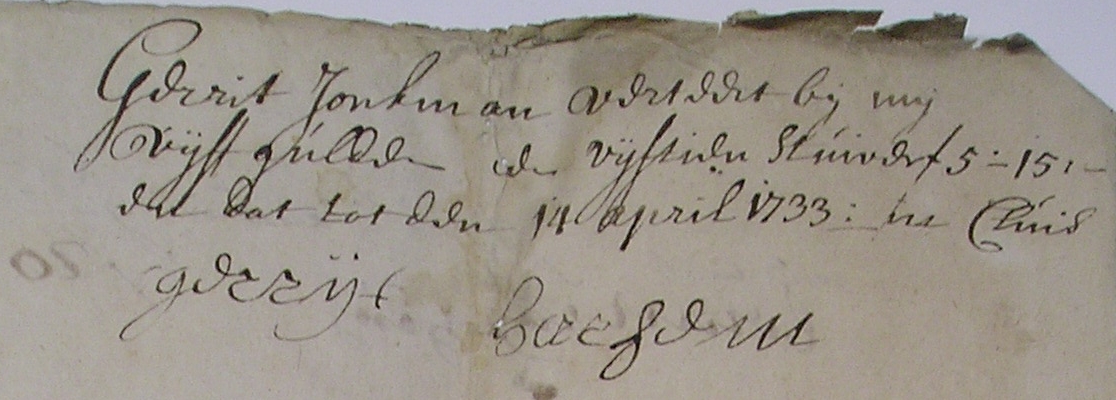 Gerrit Jonkman verteert bij mij
Vijff gullden en vijftien Stuivers f 5-:-15:-
en dat tot den 14 april 1733: in Cluis
gerrijt